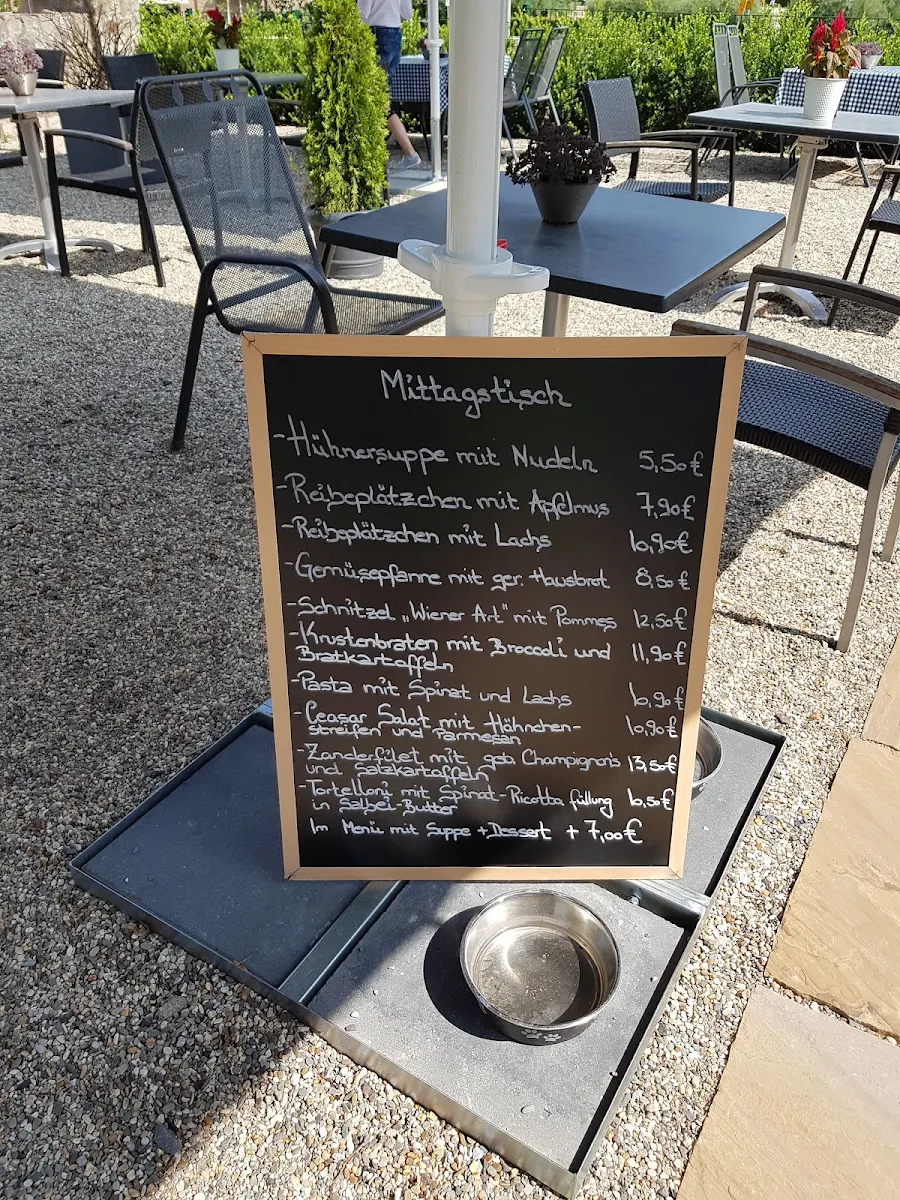 Mittagstisch
-Hühnersuppe mit Nudeln 5,50€
-Reibeplätzchen mit Apfelmus 7,90€
-Reibeplätzchen mit Lachs 10,90€
-Gemüsepfanne mit ger. Hausbrot 8,50€
-Schnitzel „Wiener Art" mit Pommes 12,50€
-Krustenbraten mit Broccoli und 11,90€
Bratkartoffeln
-Pasta mit Spinat und Lachs 10,90€
-Ceasar Salat mit Hähnchen- 10,90€
streifen und Parmesan
-Zanderfilet mit geb. Champignons 13,50€
und Salzkartoffeln
-Tortelloni mit Spinat-Ricotta füllung 10,50€
in Salbei-Butter
Im Menü mit Suppe + Dessert + 7,00€